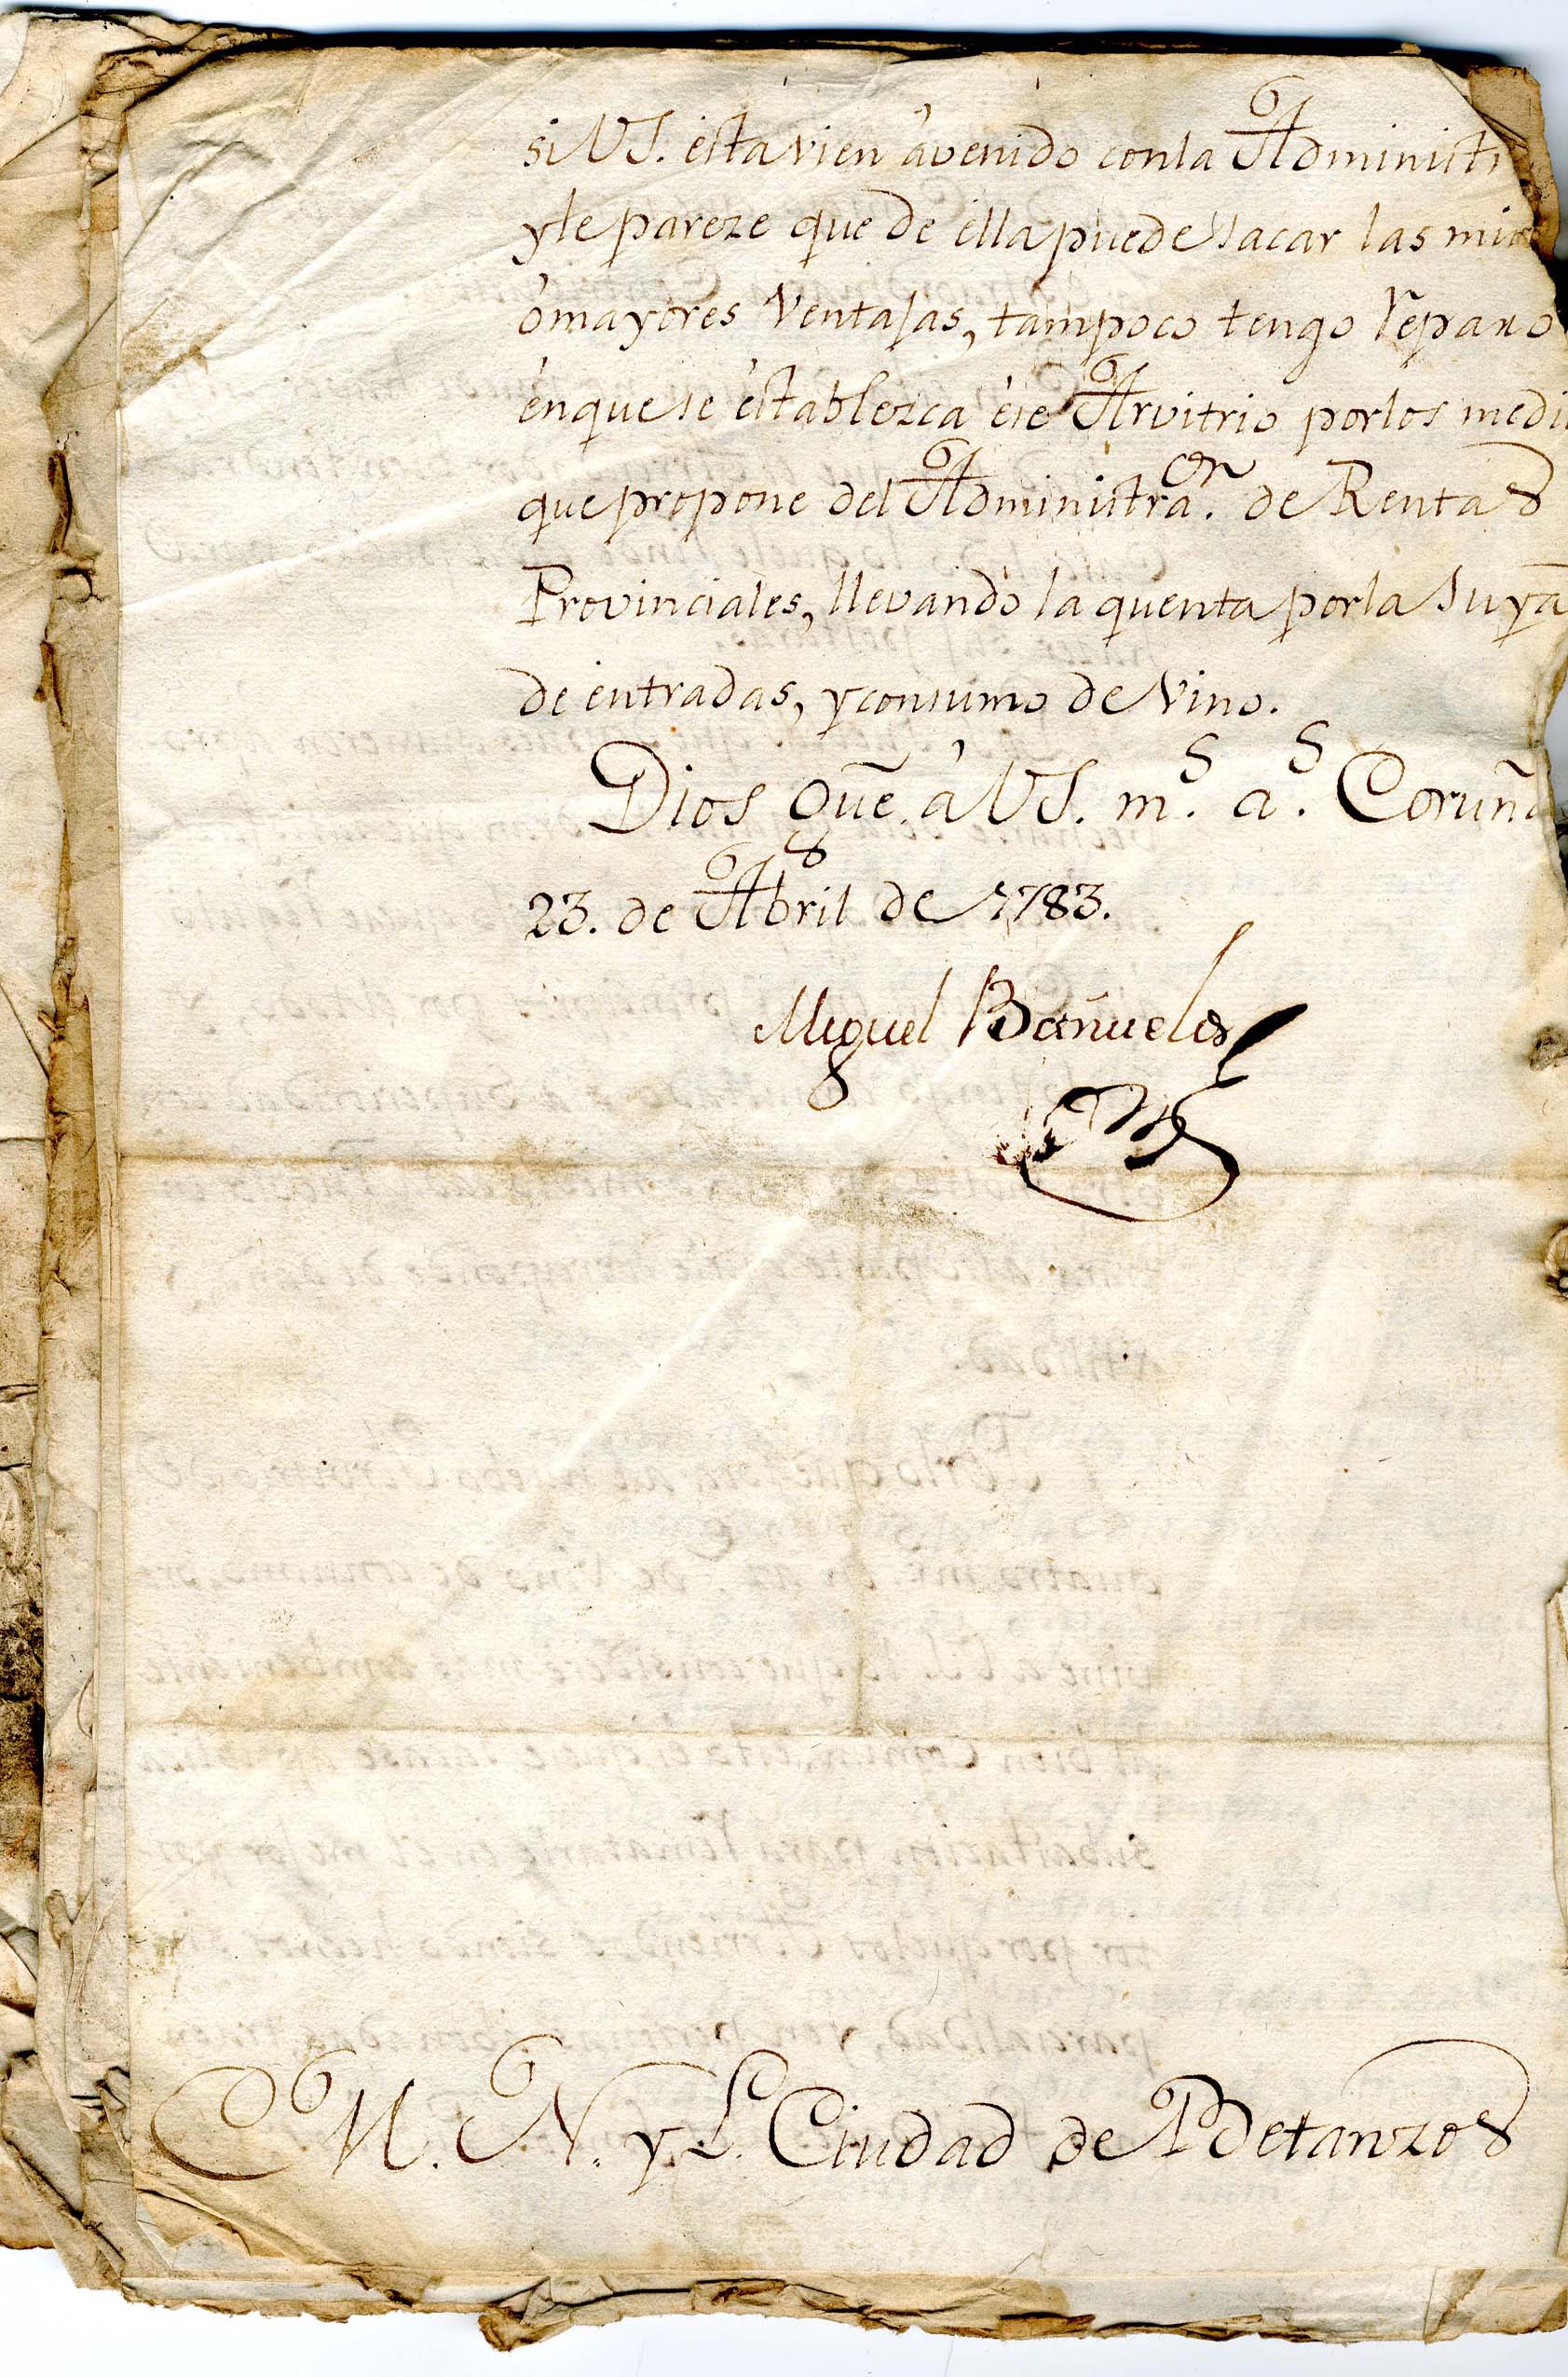 si VS. está vien avenido con la Administr
y le pareze que de ella puede sacar las mi
ó mayores Ventajas, tampoco tengo reparo
én que se éstablezca ése Arvitrio por los medi
que propone del Administra.on de Rentas
Provinciales, llevando la quenta por la suya
de entradas, y consumo de Vino.
Dios gũe. á VS. m.s a.s Coruña
23. de Abril de 1783.
Miguel Bañuelos
M. N. y L. Ciudad de Betanzos